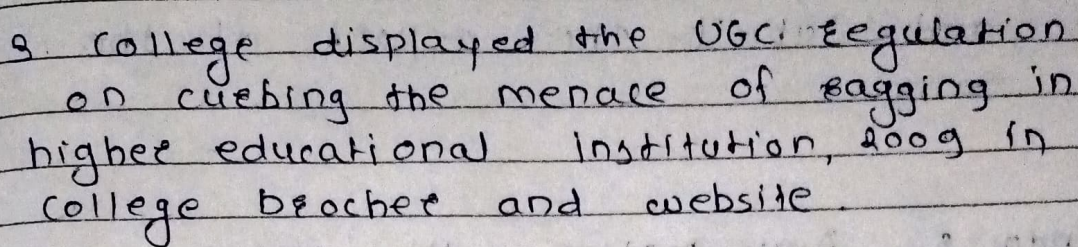 9. College displayed the UGC. regulation
on curbing the menace of ragging in
higher educational institution, 2009 in
college brocher and website.